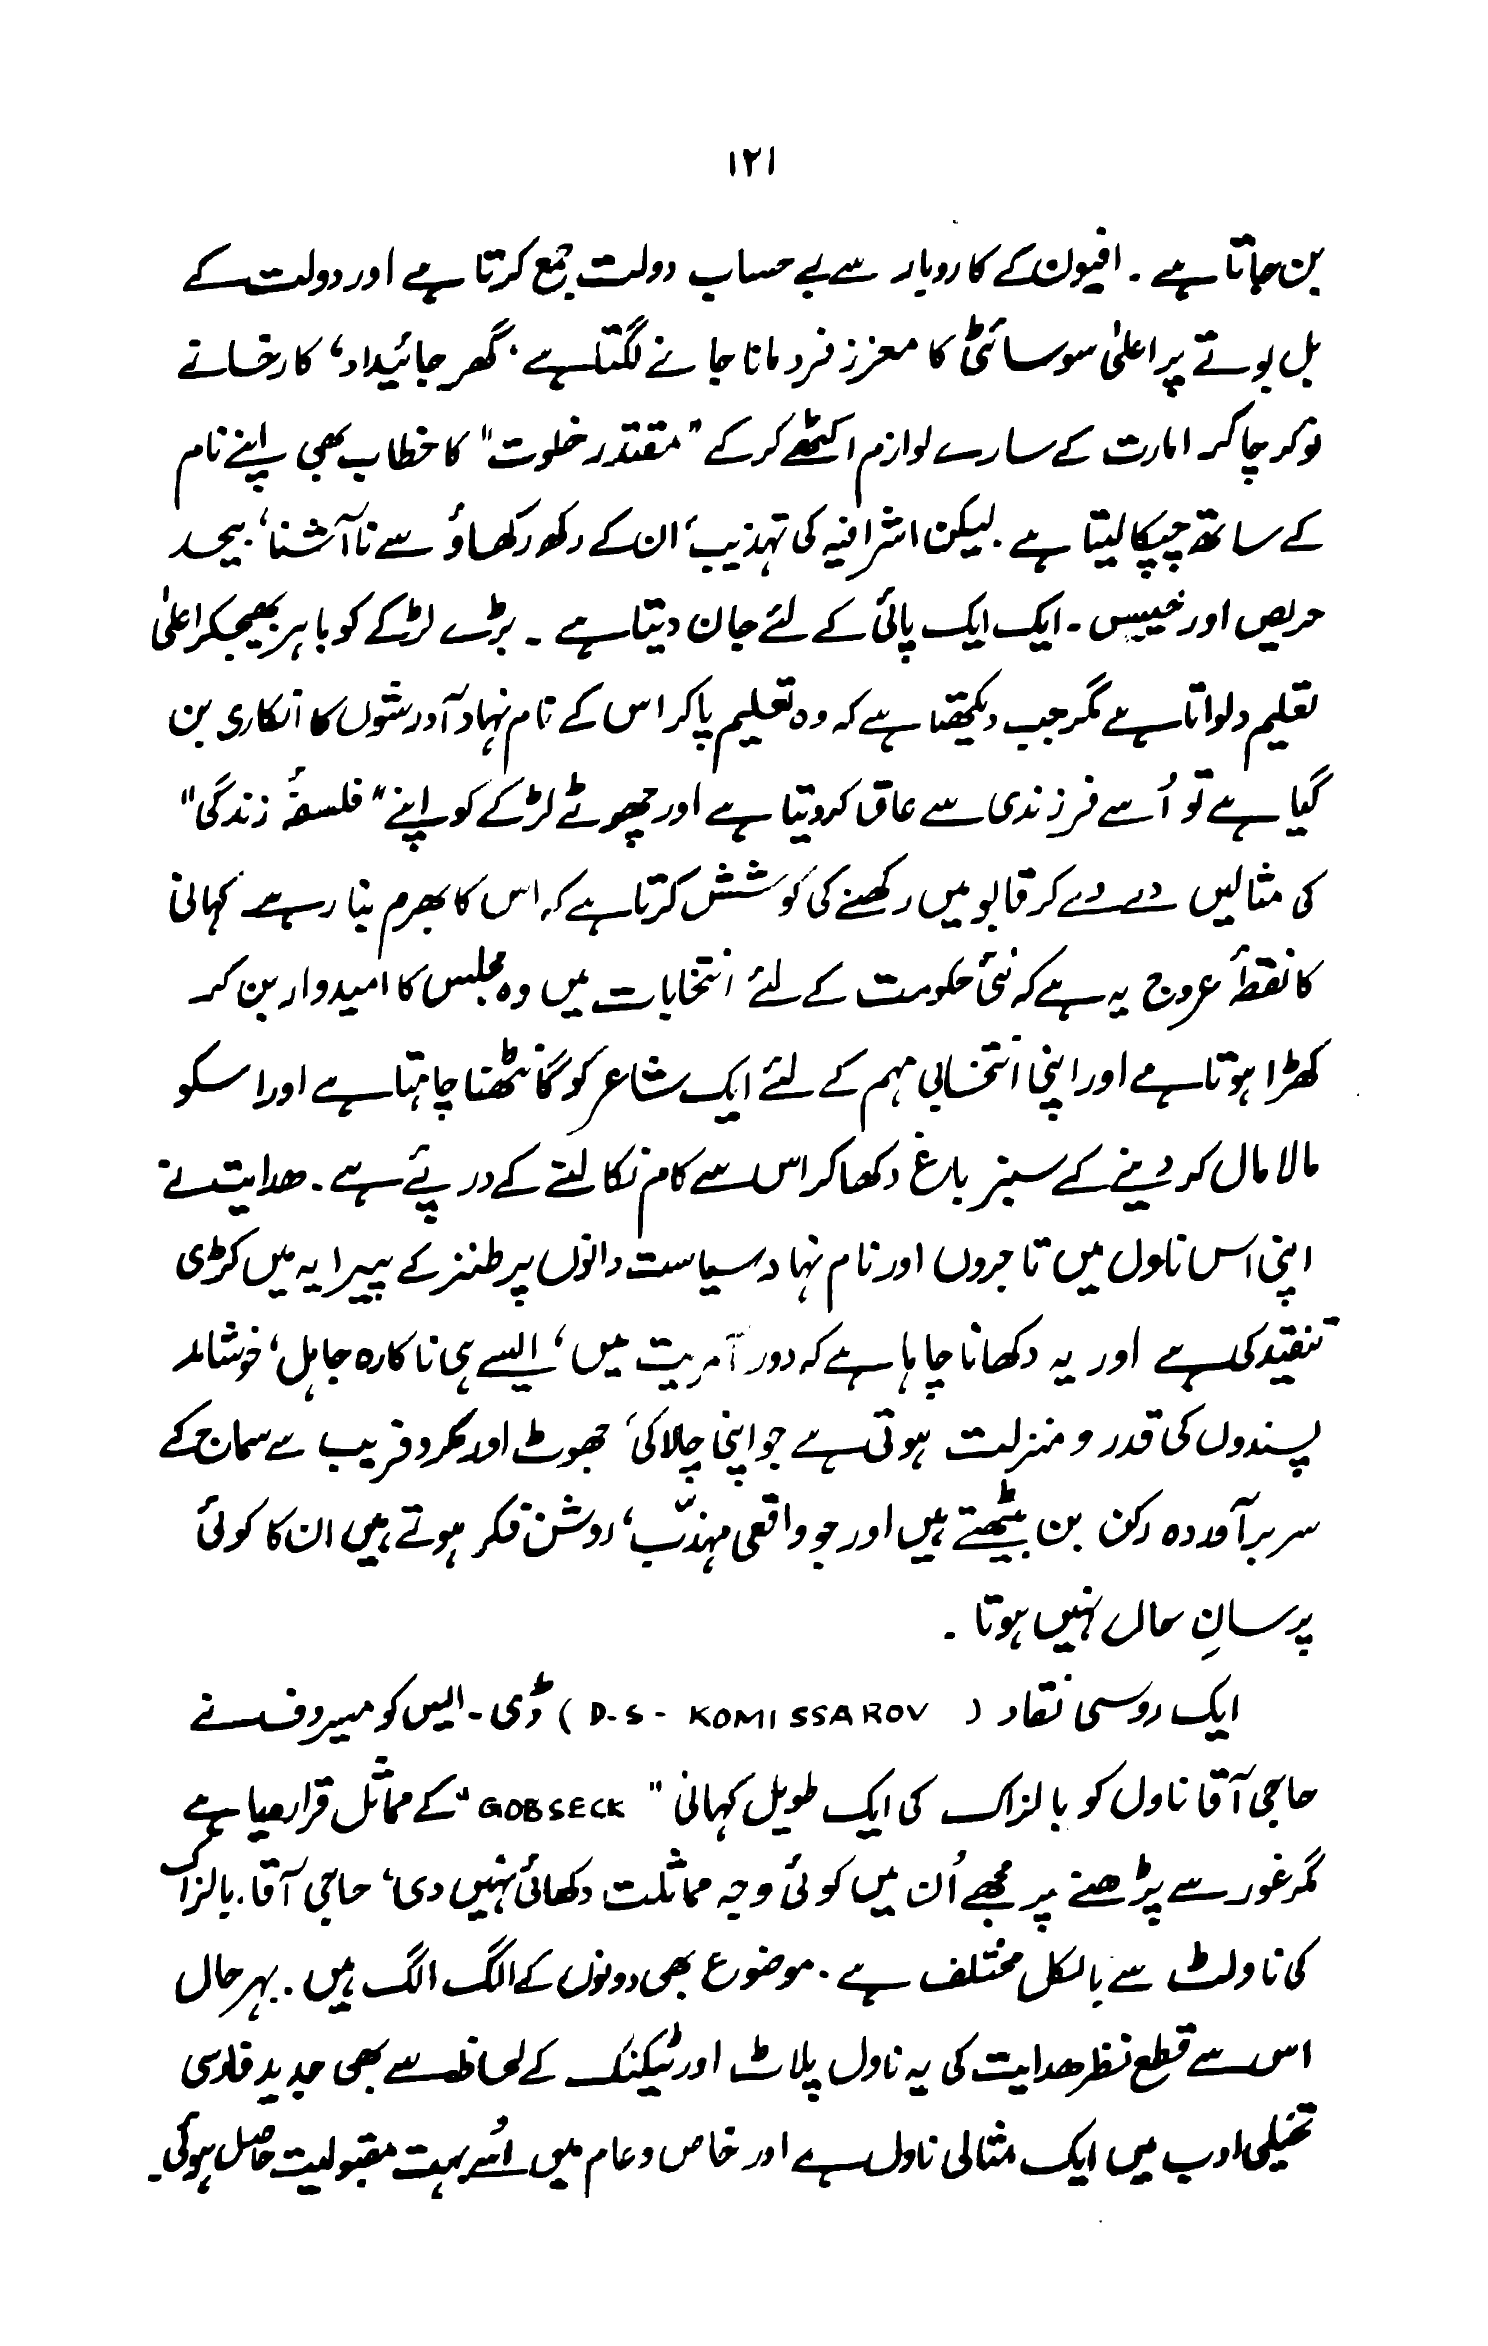 ۱۲۱
بن جاتا ہے ۔ افیون کے کاروبار سے بے حساب دولت جمع کرتا ہے اور دولت کے
بل بوتے پر اعلیٰ سوسائٹی کا معزز فرد مانا جانے لگتا ہے ‘ گھر جائیداد‘ کارخانے
نوکر چاکر امارت کے سارے لوازم اکٹھے کر کے "مقتدر خلوت" کا خطاب بھی اپنے نام
کے ساتھ چپکا لیتا ہے ۔ لیکن اشرافیہ کی تہذیب‘ ان کے رکھ رکھاؤ سے ناآشنا‘ بیحد
حریص اور خسیس ۔ ایک ایک پائی کے لئے جان دیتا ہے ۔ بڑے لڑکے کو باہر بھیجکر اعلیٰ
تعلیم دلواتا ہے مگر جب دیکھتا ہے کہ وہ تعلیم پا کر اس کے نام نہاد آدرشوں کا انکاری بن
گیا ہے تو اُسے فرزندی سے عاق کر دیتا ہے اور چھوٹے لڑکے کو اپنے "فلسفۂ زندگی"
کی مثالیں دے دے کر قابو میں رکھنے کی کوشش کرتا ہے کہ اس کا بھرم بنا رہے کہانی
کا نقطۂ عروج یہ ہے کہ نئی حکومت کے لئے انتخابات میں وہ مجلس کا امیدوار بن کر
کھڑا ہوتا ہے اور اپنی انتخابی مہم کے لئے ایک شاعر کو گانٹھنا چاہتا ہے اور اسکو
مالا مال کر دینے کے سبز باغ دکھا کر اس سے کام نکالنے کے درپئے ہے ۔ ھدایت نے
اپنی اس ناول میں تاجروں اور نام نہاد سیاست دانوں پر طنز کے پیرایہ میں کڑی
تنقید کی ہے اور یہ دکھانا چاہا ہے کہ دور آمریت میں ‘ ایسے ہی ناکارہ جاہل‘ خوشامد
پسندوں کی قدر و منزلت ہوتی ہے جو اپنی چالاکی‘ جھوٹ اور مکر و فریب سے سماج کے
سربرآوردہ رکن بن بیٹھتے ہیں اور جو واقعی مہذّب‘ روشن فکر ہوتے ہیں ان کا کوئی
پرسانِ حال نہیں ہوتا ۔
ایک روسی نقاد ( D.S. KOMISSAROV ) ڈی ۔ ایس کومیسروف نے
حاجی آقا ناول کو بالزاک کی ایک طویل کہانی " GOBSECK" کے مماثل قرار دیا ہے
مگر غور سے پڑھنے پر مجھے اُن میں کوئی وجہ مماثلت دکھائی نہیں دی‘ حاجی آقا ۔ بالزاک
کی ناولٹ سے بالکل مختلف ہے ۔ موضوع بھی دونوں کے الگ الگ ہیں ۔ بہرحال
اس سے قطع نظر ھدایت کی یہ ناول پلاٹ اور ٹیکنک کے لحاظ سے بھی جدید فارسی
تخیلی ادب میں ایک مثالی ناول ہے اور خاص و عام میں اُسے بہت مقبولیت حاصل ہوئی۔